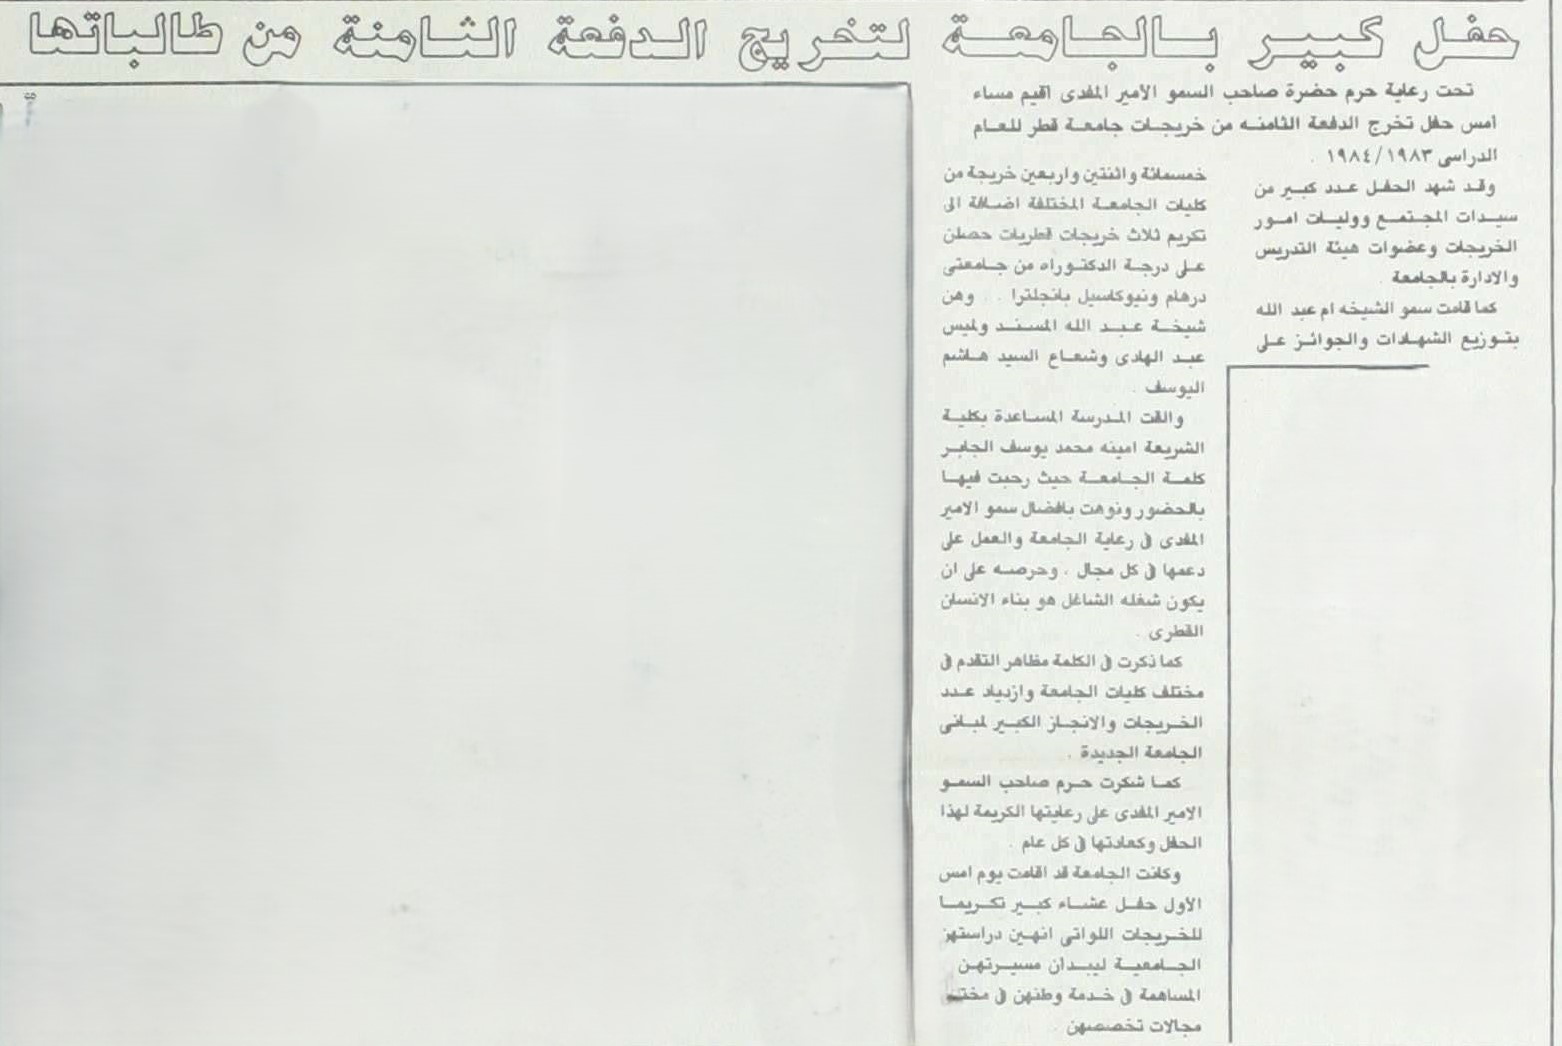 حفل كبير بالجامعة لتخريج الدفعة الثامنة من طالباتها
تحت رعاية حرم حضرة صاحب السمو الامير المفدى اقيم مساء
امس حفل تخرج الدفعة الثامنه من خريجات جامعة قطر للعام
الدراسى ١٩٨٣/ ١٩٨٤ .
وقد شهد الحفل عدد كبير من
سيدات المجتمع ووليات امور
الخريجات وعضوات هيئة التدريس
والادارة بالجامعة .
كما قامت سمو الشيخه ام عبد الله
بتوزيع الشهادات والجوائز على
خمسمائة واثنتين واربعين خريجة من
كليات الجامعة المختلفة اضافة الى
تكريم ثلاث خريجات قطريات حصلن
على درجة الدكتوراه من جامعتى
درهام ونيوكاسيل بانجلترا . . وهن
شيخة عبد الله المسند ولميس
عبد الهادى وشعاع السيد هاشم
اليوسف .
والقت المدرسة المساعدة بكلية
الشريعة امينه محمد يوسف الجابر
كلمة الجامعة حيث رحبت فيها
بالحضور ونوهت بافضال سمو الامير
المفدى فى رعاية الجامعة والعمل على
دعمها فى كل مجال . وحرصه على ان
يكون شغله الشاغل هو بناء الانسان
القطرى .
كما ذكرت فى الكلمة مظاهر التقدم فى
مختلف كليات الجامعة وازدياد عدد
الخريجات والانجاز الكبير لمبانى
الجامعة الجديدة .
كما شكرت حرم صاحب السمو
الامير المفدى على رعايتها الكريمة لهذا
الحفل وكعادتها فى كل عام .
وكانت الجامعة قد اقامت يوم امس
الاول حفل عشاء كبير تكريما
للخريجات اللواتى انهين دراستهن
الجامعية ليبدان مسيرتهن
المساهمة فى خدمة وطنهن فى
مجالات تخصصهن